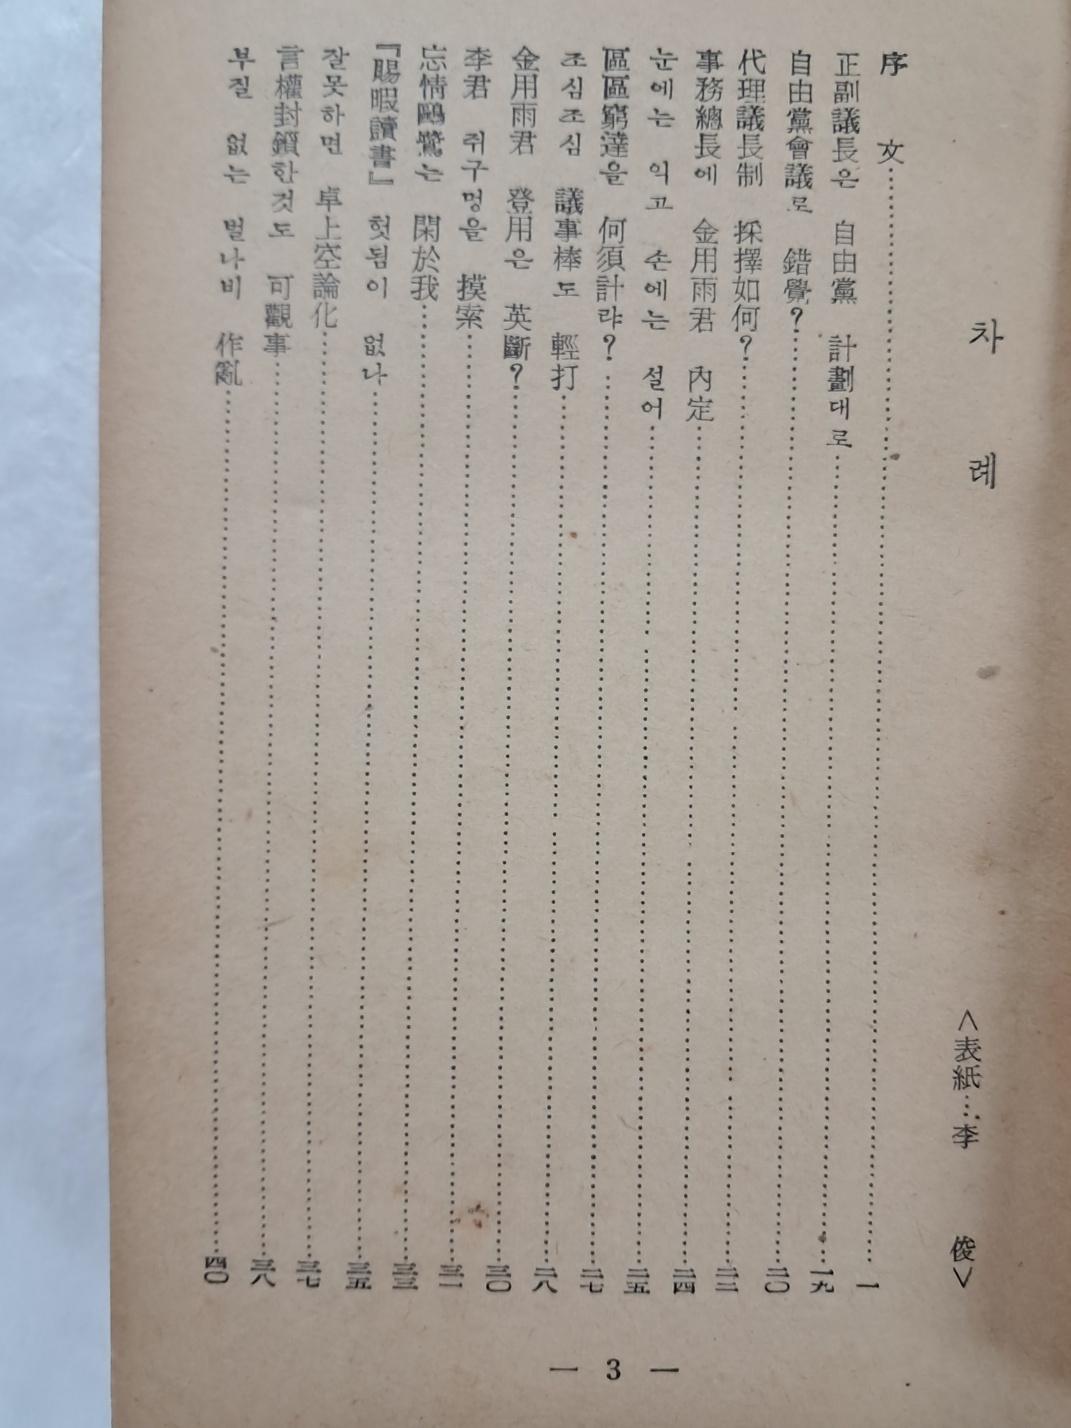 차 례
<表紙…李 俊>
序 文……一
正副議長은 自由黨 計劃대로……一九
自由黨會議로 錯覺?……二〇
代理議長制 採擇如何?……二二
事務總長에 金用雨君 內定……二四
눈에는 익고 손에는 설어……二五
區區窮達을 何須計랴?……二七
조심조심 議事棒도 輕打……二八
金用雨君 登用은 英斷?……三〇
李君 쥐구멍을 摸索……三一
忘情鷗鷺는 閑於我……三三
『賜暇讀書』 헛됨이 없나……三五
잘못하면 卓上空論化……三七
言權封鎖한것도 可觀事……三八
부질 없는 벌나비 作亂……四〇
— 3 —